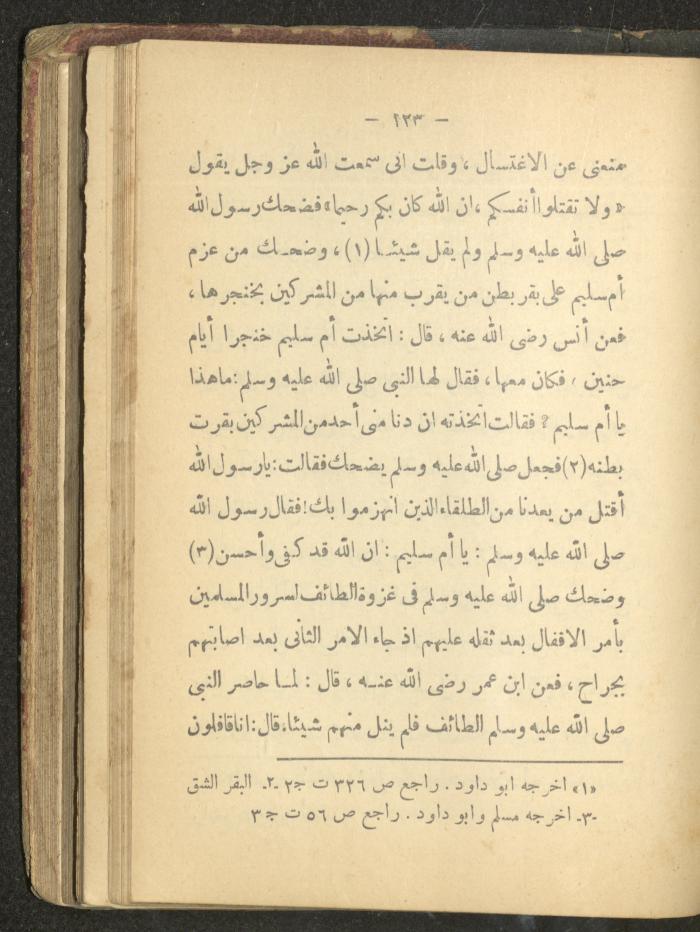 — ١٢٣ —
منعنى عن الاغتسال ، وقلت انى سمعت الله عز وجل يقول
« ولا تقتلوا أنفسكم ، ان الله كان بكم رحيما » فضحك رسول الله
صلى الله عليه وسلم ولم يقل شيئـا (١) ، وضحـك من عزم
أم سليم على بقر بطن من يقرب منها من المشركين بخنجرها ،
فعن أنس رضى الله عنه ، قال : اتخذت أم سليم خنجرا أيام
حنين ، فكان معها ، فقال لها النبى صلى الله عليه وسلم : ما هذا
يا أم سليم ؟ فقالت اتخذته ان دنا منى أحد من المشركين بقرت
بطنه (٢) فجعل صلى الله عليه وسلم يضحك فقالت : يا رسول الله
أقتل من يعدنا من الطلقاء الذين انهزموا بك ! فقال رسول الله
صلى الله عليه وسلم : يا أم سليم : ان الله قد كفى وأحسن (٣)
وضحك صلى الله عليه وسلم فى غزوة الطائف لسرور المسلمين
بأمر الاقفال بعد ثقله عليهم اذ جاء الامر الثانى بعد اصابتهم
بجراح ، فعن ابن عمر رضى الله عنـه ، قال : لمـا حاصر النبى
صلى الله عليه وسلم الطائف فلم ينل منهم شيئا ، قال : انا قافلون
«١» اخرجه ابو داود . راجع ص ٣٢٦ ت جـ٢ -٢- البقر الشق
-٣- اخرجه مسلم وابو داود . راجع ص ٥٦ ت جـ ٣